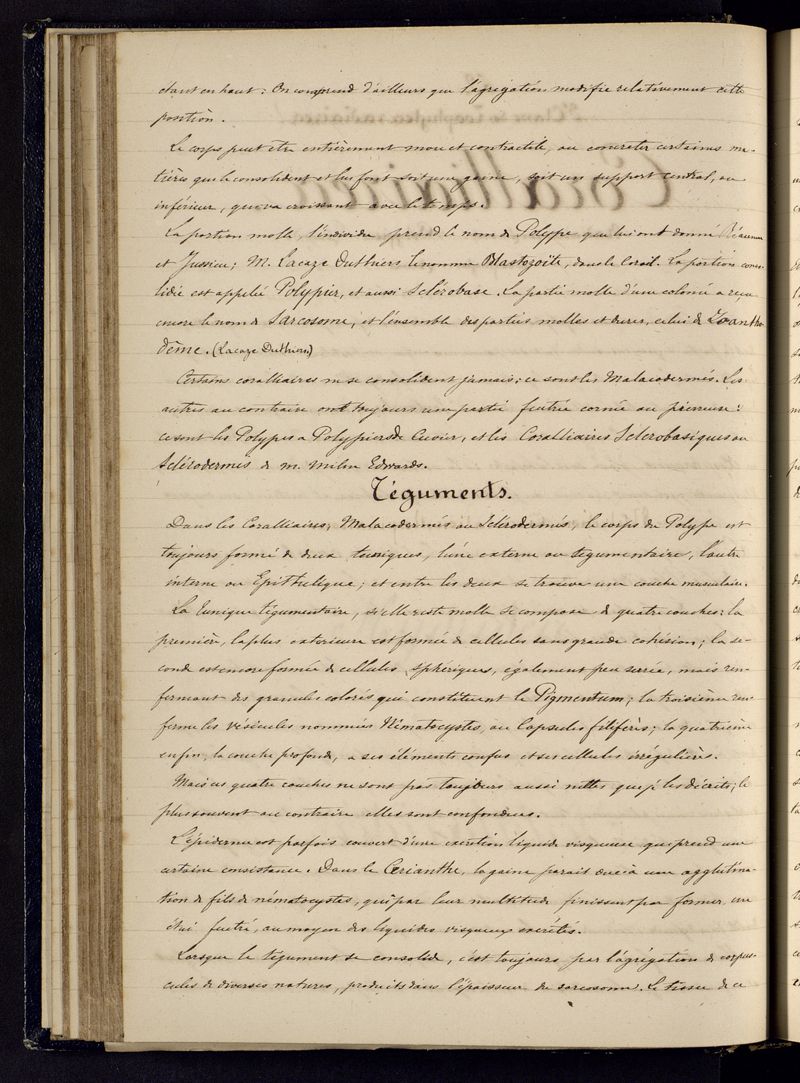 étant en haut : On comprend d'ailleurs que l'agrégation modifie relativement cette
position .
Le corps peut être entièrement mou et contractile, ou concréter certaines ma-
tières qui le consolident et lui font soit une gaine, soit un support central, ou
inférieur, qui va croissant avec le temps.
La portion molle, l'individu prend le nom de Polype que lui ont donné Réaumur
et Jussieu; M. Lacaze Duthiers le nomme Blastozoïte, dans le Corail. La portion conso-
lidée est appelée Polypier, et aussi Sclérobase. La partie molle d'une colonie a reçu
encore le nom de Sarcosome, et l'ensemble des parties molles et dures, celui de Zoantho-
dème. (Lacaze Duthiers)
Certains coralliaires ne se consolident jamais : ce sont les Malacodermés. Les
autres au contraire ont toujours une partie feutrée cornée ou pierreuse :
ce sont les Polypes à Polypiers de Cuvier, et les Coralliaires Sclérobasiques ou
Sclérodermés de M. Milne Edwards.
Téguments.
Dans les Coralliaires, Malacodermés ou Sclérodermés, le corps du Polype est
toujours formé de deux tuniques, l'une externe ou tégumentaire, l'autre
interne ou Epithélique ; et entre les deux se trouve une couche musculaire.
La tunique tégumentaire, si elle reste molle se compose de quatre couches : la
première, la plus extérieure est formée de cellules sans grande cohésion ; la se-
conde est encore formée de cellules sphériques, également peu serrées, mais ren-
fermant des granules colorés qui constituent le Pigmentum ; la troisième ren-
ferme les vésicules nommées Nématocystes, ou Capsules filifères ; la quatrième
enfin, la couche profonde, a ses éléments confus et ses cellules irrégulières.
Mais ces quatre couches ne sont pas toujours aussi nettes que je les décrits, le
plus souvent au contraire elles sont confondues.
L'épiderme est parfois couvert d'une excrétion liquide visqueuse qui prend une
certaine consistance. Dans le Cérianthe, la gaine parait due à une agglutina-
tion de fils de nématocystes, qui par leur multitude finissent par former un
étui feutré, au moyen des liquides visqueux excrétés.
Lorsque le tégument se consolide, c'est toujours par l'agrégation de corpus-
cules de diverses natures, produits dans l'épaisseur du sarcosome. Le tissu de ce